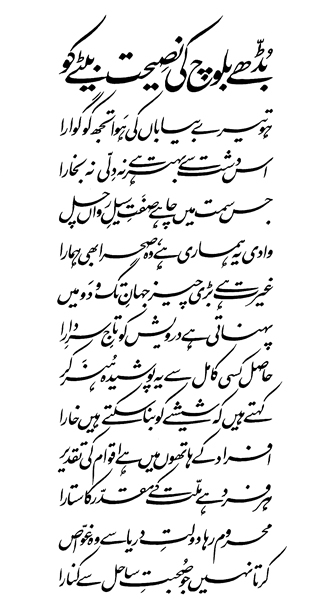 بُڈھے بلوچ کی نصیحت بیٹے کو
ہو تیرے بیاباں کی ہوا تجھ کو گوارا
اس دشت سے بہتر ہے نہ دِلّی نہ بخارا
جس سمت میں چاہے صفَتِ سیلِ رواں چل
وادی یہ ہماری ہے، وہ صحرا بھی ہمارا
غیرت ہے بڑی چیز جہانِ تگ و دَو میں
پہناتی ہے درویش کو تاجِ سرِ دارا
حاصل کسی کامل سے یہ پوشیدہ ہُنر کر
کہتے ہیں کہ شیشے کو بنا سکتے ہیں خارا
افراد کے ہاتھوں میں ہے اقوام کی تقدیر
ہر فرد ہے ملّت کے مقدّر کا ستارا
محروم رہا دولتِ دریا سے وہ غوّاص
کرتا نہیں جو صُحبتِ ساحل سے کنارا